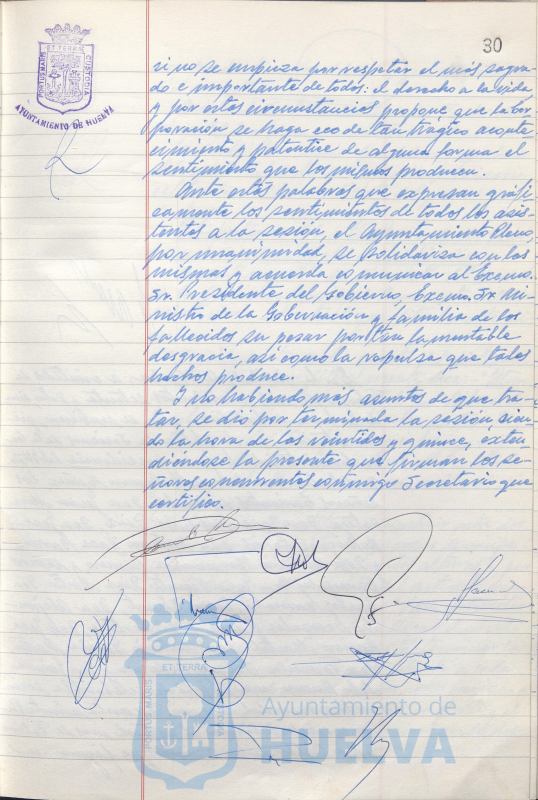 30
PORTUS MARIS
ET TERRA
CUSTODIA
AYUNTAMIENTO DE HUELVA
si no se empieza por respetar el más sagra-
do e importante de todos: el derecho a la vida
y por estas circunstancias propone que la Cor-
poración se haga eco de tan trágico aconte-
cimiento y patentice de alguna forma el
sentimiento que los mismos producen.
Ante estas palabras que expresan gráfi-
camente los sentimientos de todos los asis-
tentes a la sesión, el Ayuntamiento Pleno,
por unanimidad, se solidariza con las
mismas y acuerda comunicar al Excmo.
Sr. Presidente del Gobierno, Excmo. Sr. Mi-
nistro de la Gobernación y familia de los
fallecidos su pesar por tan lamentable
desgracia, así como la repulsa que tales
hechos produce.
Y no habiendo más asuntos de que tra-
tar, se dió por terminada la sesión sien-
do la hora de las veintidos y quince, exten-
diéndose la presente que firman los se-
ñores concurrentes conmigo Secretario que
certifico.
ET TERRA
PORTUS MARIS
Ayuntamiento de
HUELVA